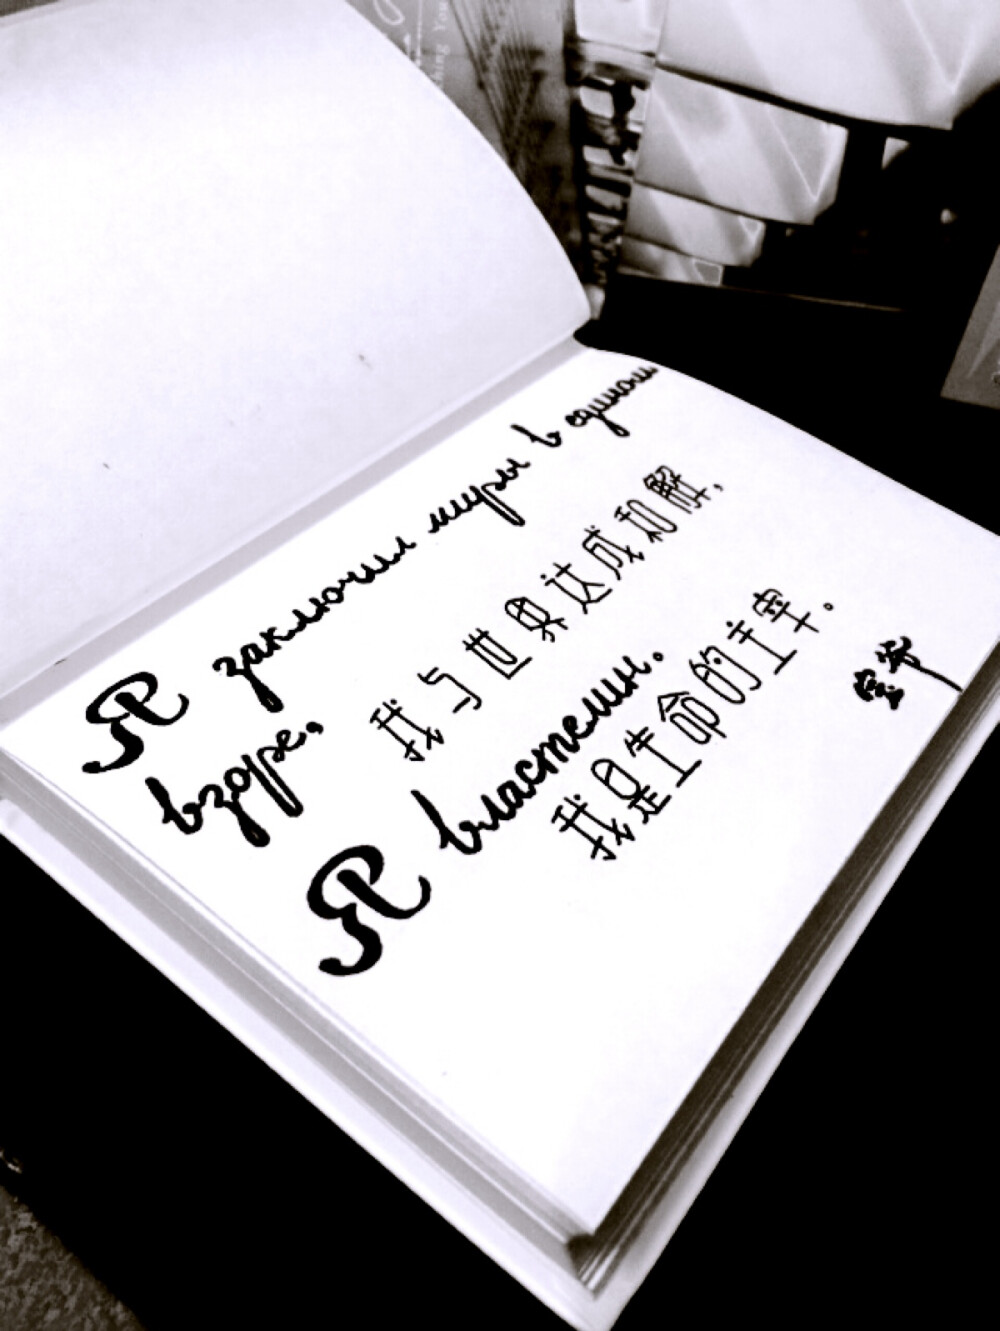 Я заключил миры в едином
взоре,
我与世界达成和解,
Я властелин.
我是生命的主宰。